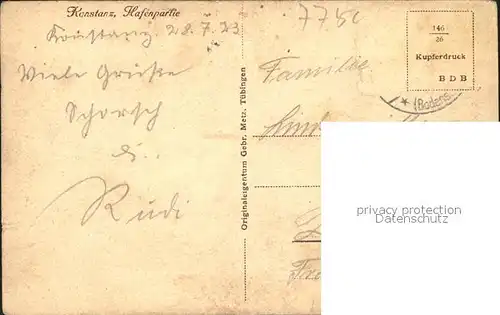 Konstanz, Hafenpartie
7750
Konstanz, 28.7.23
Viele Grüße
Schorsch
u.
Rudi
Originaleigentum Gebr. Metz, Tübingen
146
26
Kupferdruck
B D B
Familie
(Baden)
privacy protection
Datenschutz